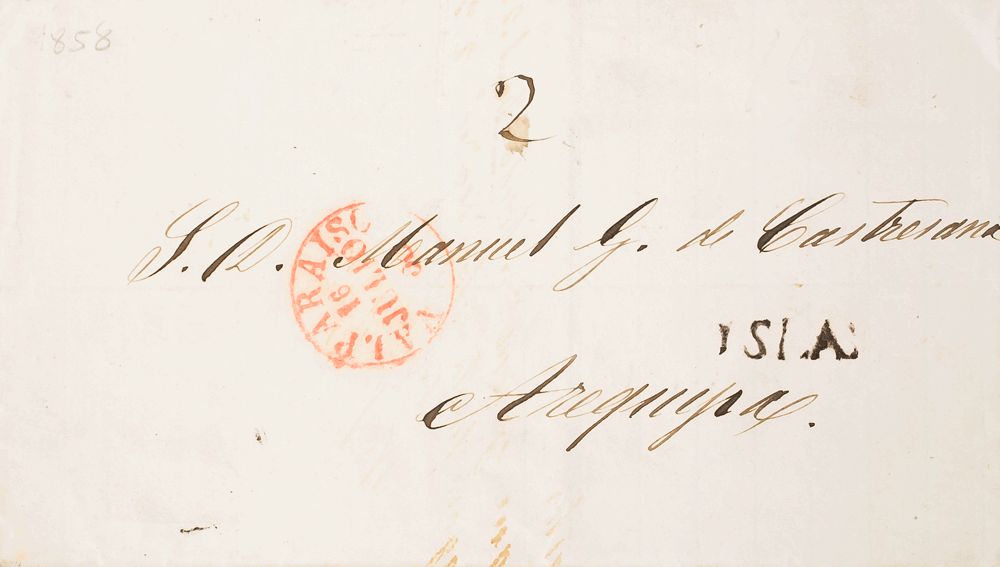 858
2
S. D. Manuel G. de Castresana
VALPARAISO
16
JULIO
58
ISLA
Arequipa.